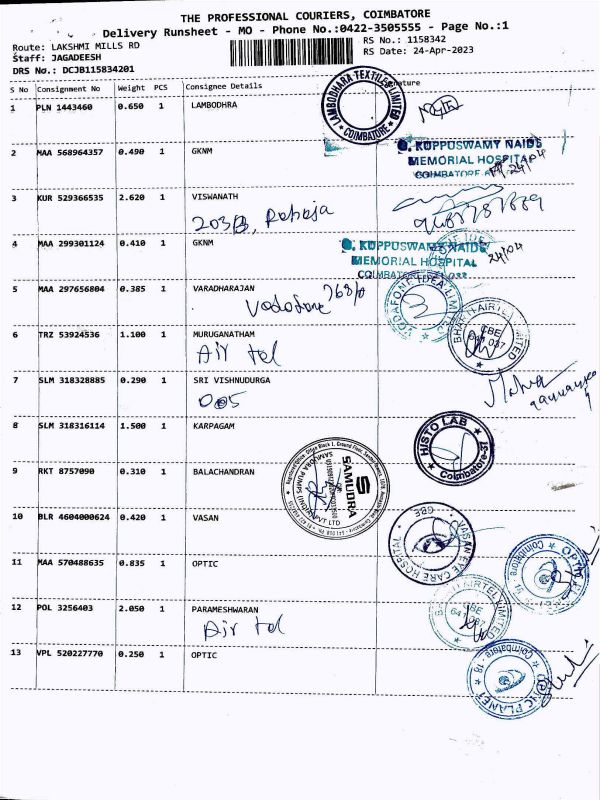 THE PROFESSIONAL COURIERS, COIMBATORE
Delivery Runsheet - MO - Phone No.:0422-3505555 - Page No.:1
Route: LAKSHMI MILLS RD
RS No.: 1158342
Staff: JAGADEESH
RS Date: 24-Apr-2023
DRS No.: DCJB115834201
S No Consignment No Weight PCS Consignee Details Signature
1 PLN 1443460 0.650 1 LAMBODHRA
LAMBODHARA TEXTILE LIMITED
* COIMBATORE *
2 MAA 568964357 0.490 1 GKNM
G. KUPPUSWAMY NAIDU
MEMORIAL HOSPITAL
COIMBATORE
24/04
3 KUR 529366535 2.620 1 VISWANATH
203B, Raheja
4 MAA 299301124 0.410 1 GKNM
G. KUPPUSWAMY NAIDU
MEMORIAL HOSPITAL
COIMBATORE
24/04
5 MAA 297656804 0.385 1 VARADHARAJAN
Vodafone
VODAFONE IDEA LIMITED
6 TRZ 53924536 1.100 1 MURUGANATHAM
Air tel
BHARTI AIRTEL LIMITED
CBE
641 037
7 SLM 318328885 0.290 1 SRI VISHNUDURGA
005
8 SLM 318316114 1.500 1 KARPAGAM
HISTO LAB
Coimbatore-37
9 RKT 8757090 0.310 1 BALACHANDRAN
SAMUDRA
SAMUDRA PUMPS (INDIA) PVT LTD
10 BLR 4604000624 0.420 1 VASAN
VASAN EYE CARE HOSPITAL
CBE
11 MAA 570488635 0.835 1 OPTIC
Coimbatore
12 POL 3256403 2.050 1 PARAMESHWARAN
Air tel
AIRTEL LIMITED
CBE
13 VPL 520227770 0.250 1 OPTIC
Coimbatore - 18
PLANET